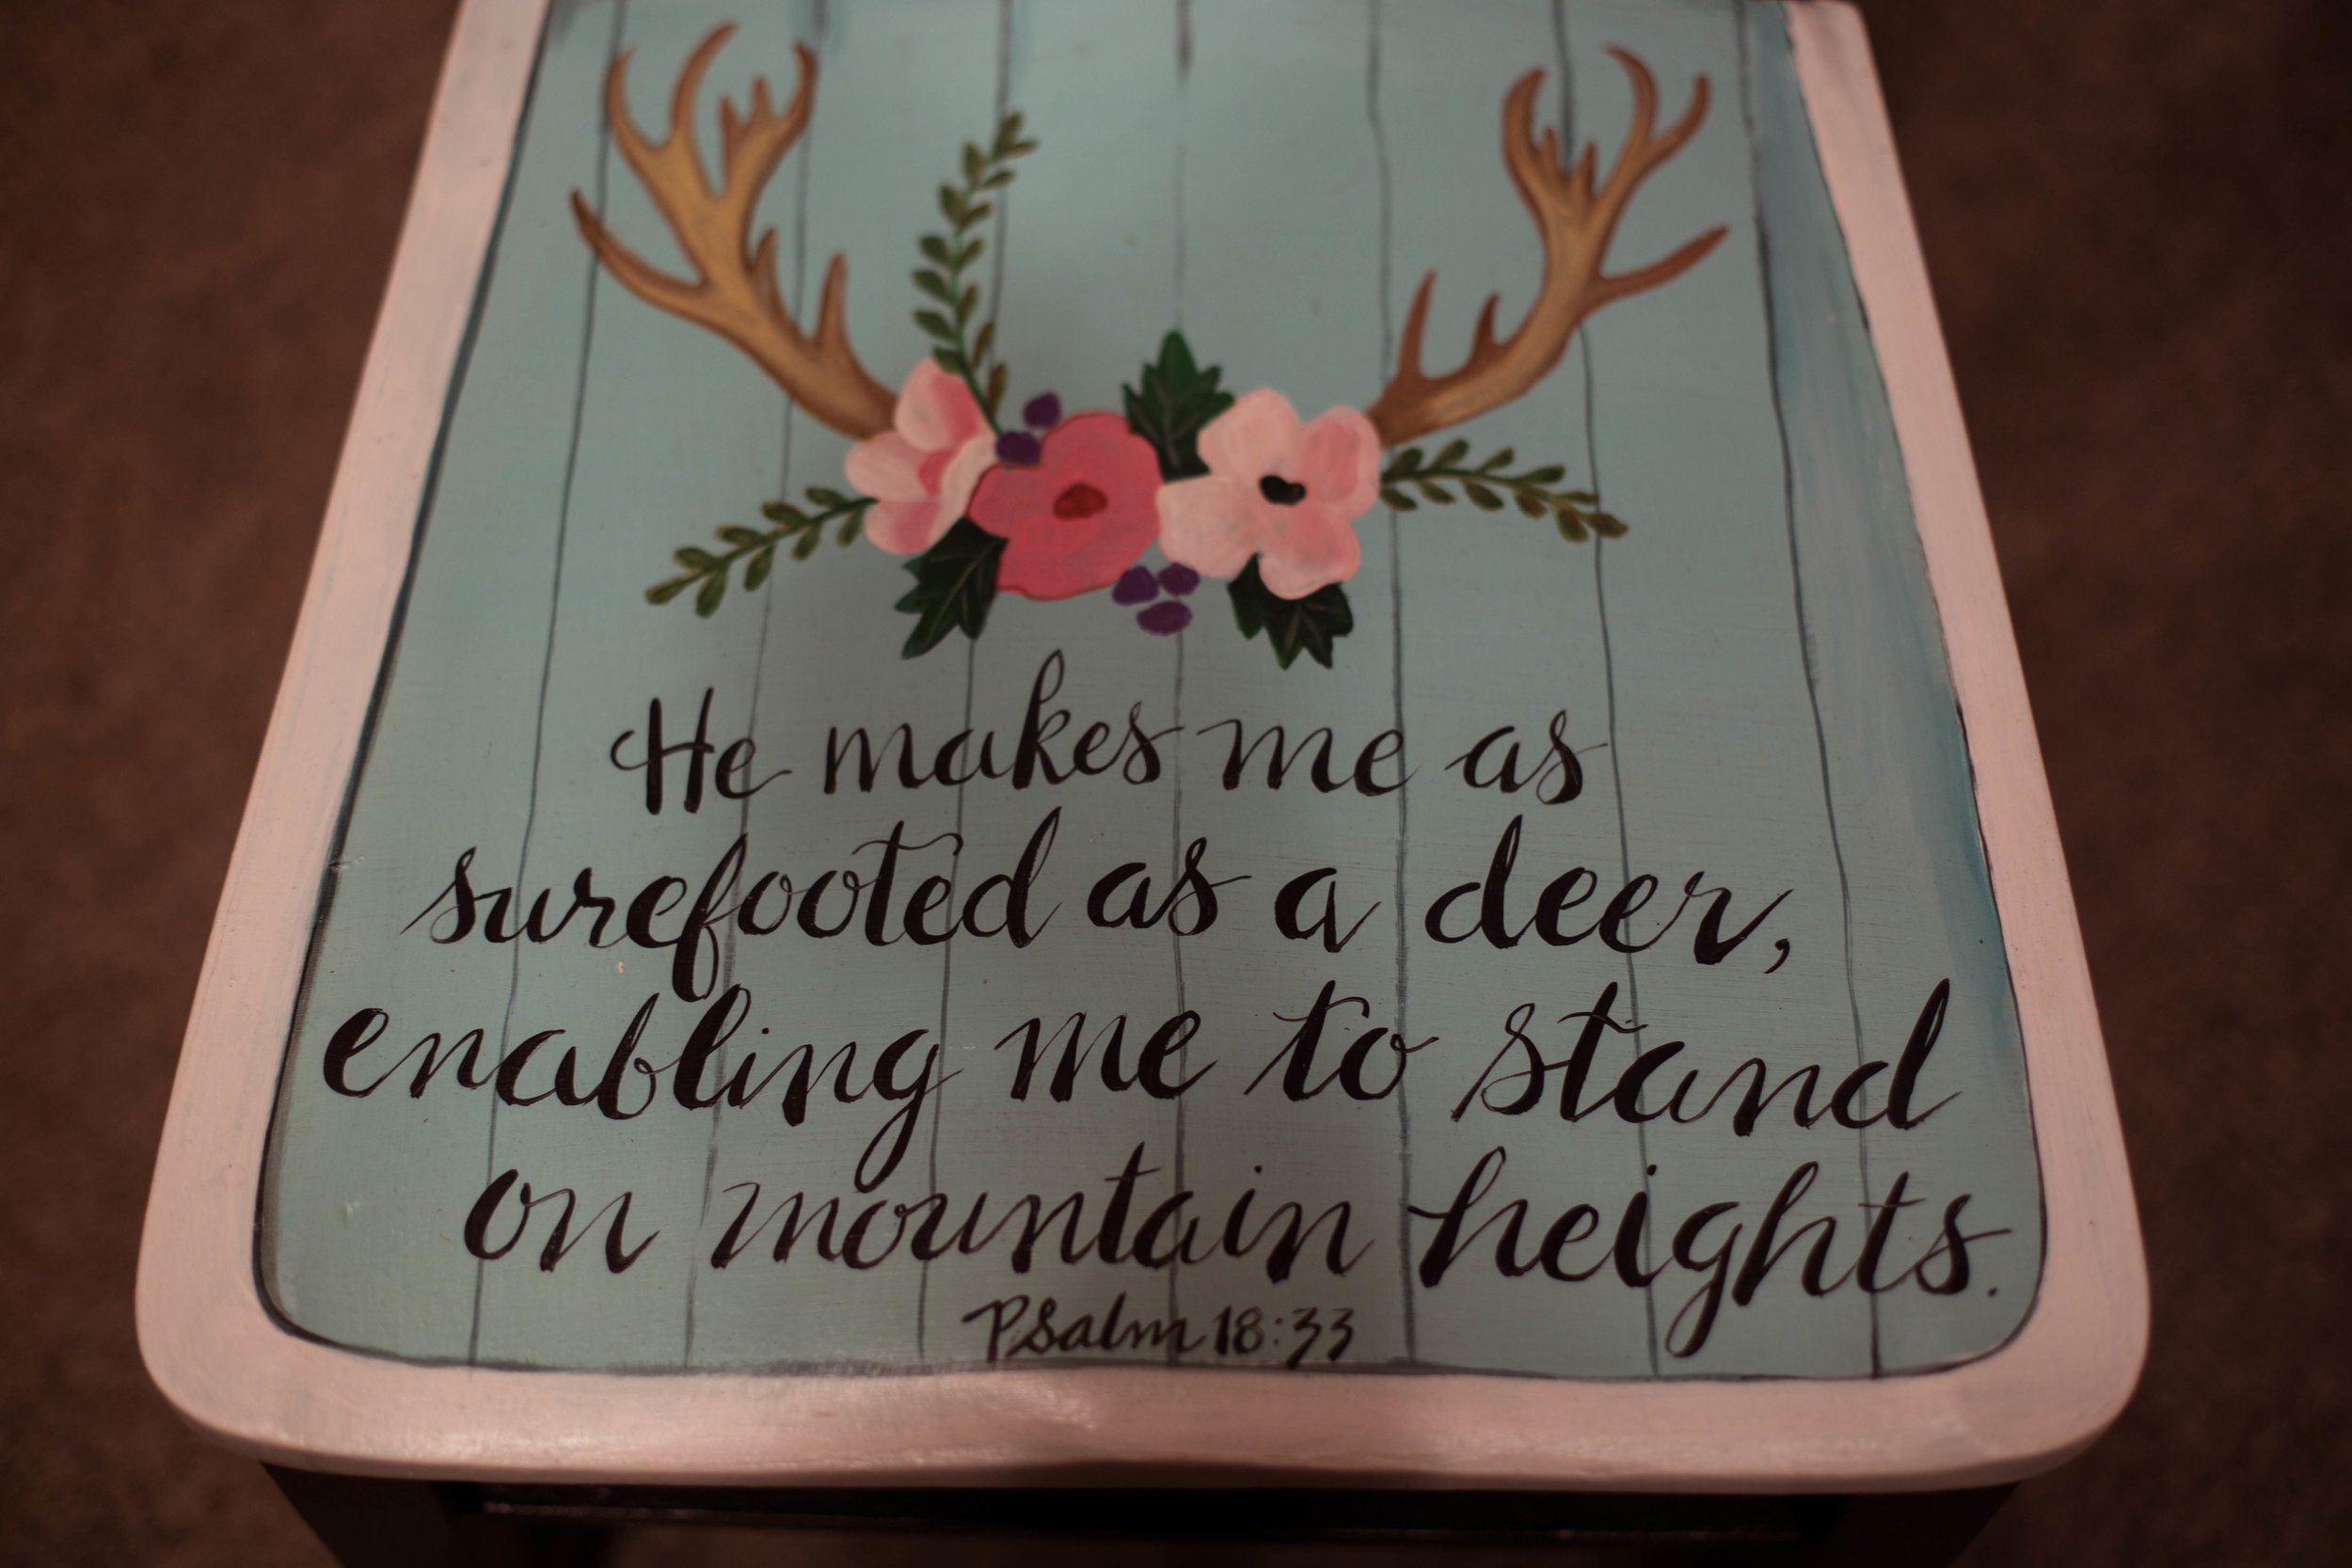 He makes me as
surefooted as a deer,
enabling me to stand
on mountain heights.
Psalm 18:33